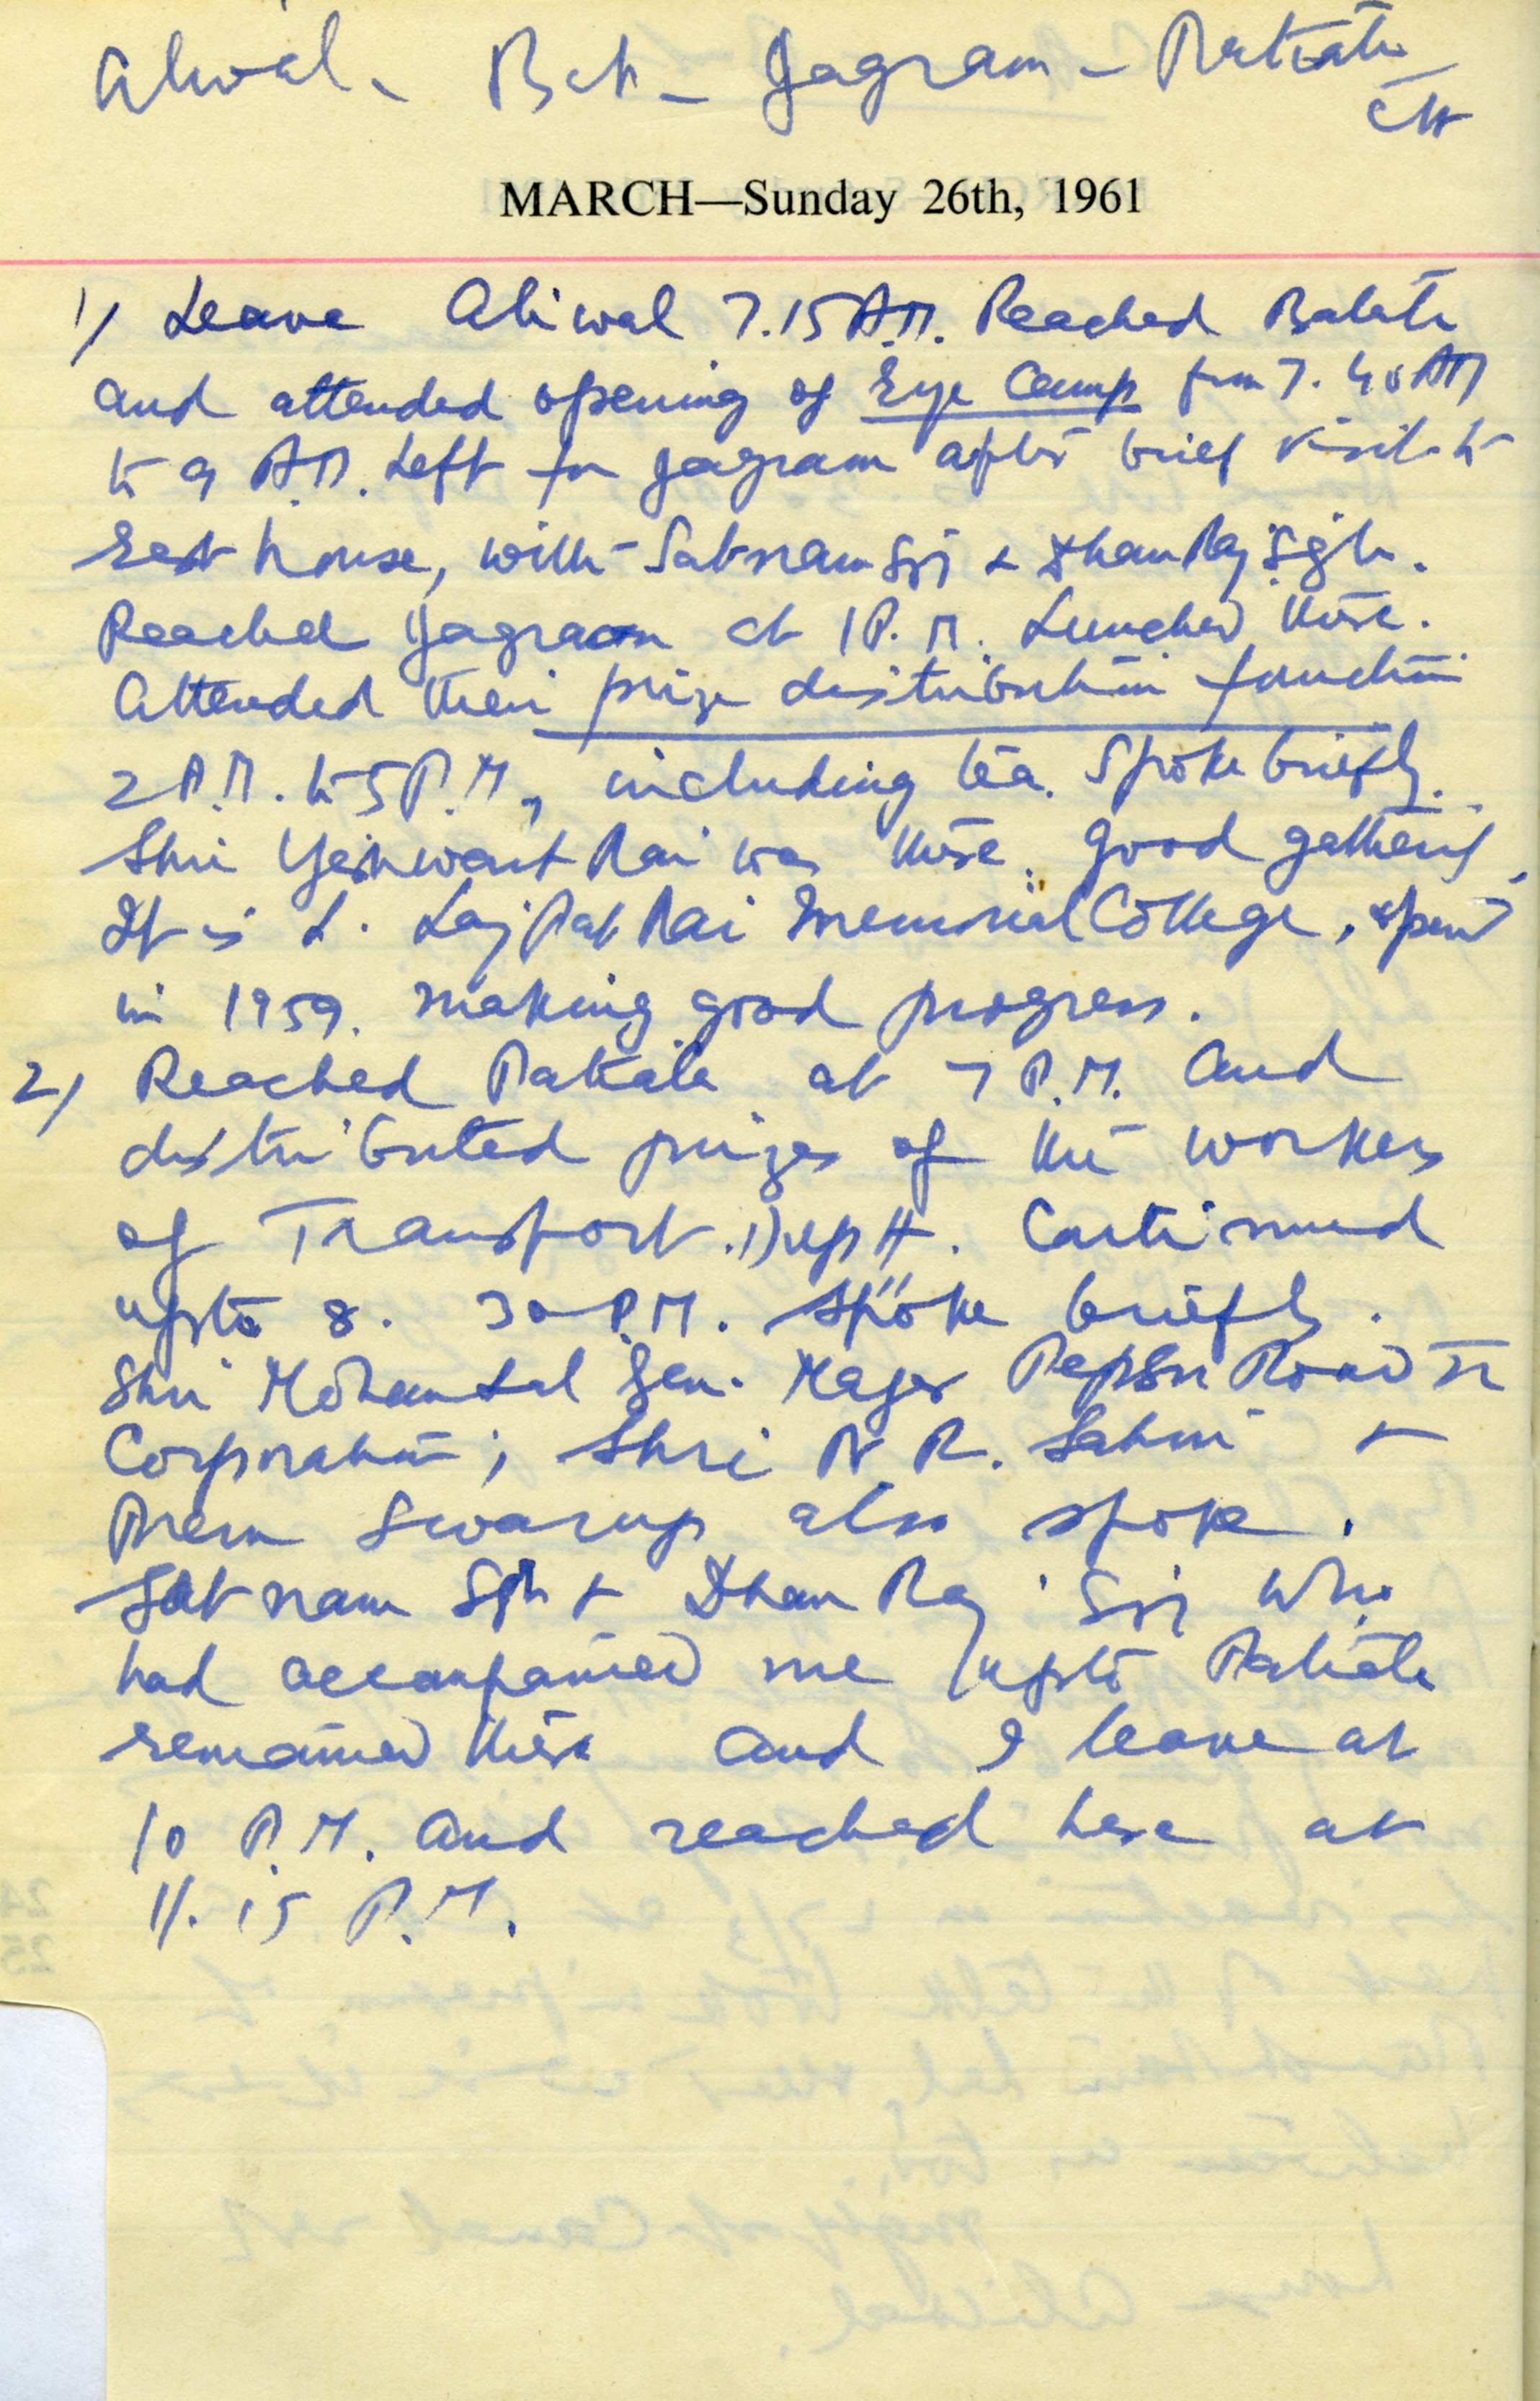 Aliwal - Bat - Jagraon - Patiala -
CH
MARCH—Sunday 26th, 1961
1/ Leave Aliwal 7.15 A.M. Reached Batala
and attended opening of Eye Camp from 7.40 AM
to 9 A.M. Left for Jagraon after brief visit to
rest house, with Satnam Sgj & Dhan Raj Sgh.
Reached Jagraon at 1 P.M. Lunched there.
Attended their prize distribution function
2 P.M. to 5 P.M, including tea. Spoke briefly.
Shri Yashwant Rai was there. Good gathering.
It is L. Lajpat Rai Memorial College, opened
in 1959. making good progress.
2/ Reached Patiala at 7 P.M. and
distributed prizes of the workers
of Transport Deptt. Continued
upto 8.30 P.M. Spoke briefly.
Shri Mohan Lal Gen. Mager Pepsu Road Tr
Corporation; Shri N.R. Sahni &
Prem Swarup also spoke.
Satnam Sgh & Dhan Raj Sgj who
had accompanied me upto Patiala
remained there and I leave at
10 P.M. and reached here at
11.15 P.M.